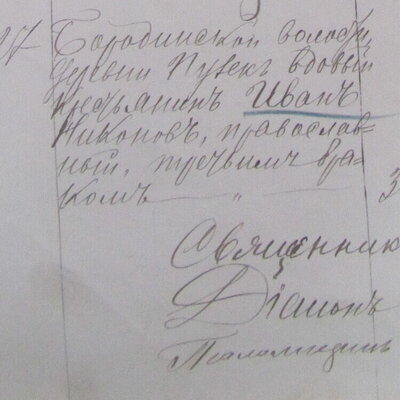 27 Бородинской волости,
деревни Пувекъ вдовый
крестьянинъ Иванъ
Никоновъ, православ=
ный, третьимъ бра=
комъ — „ — 3
Священник
Діакон
Псаломщикъ